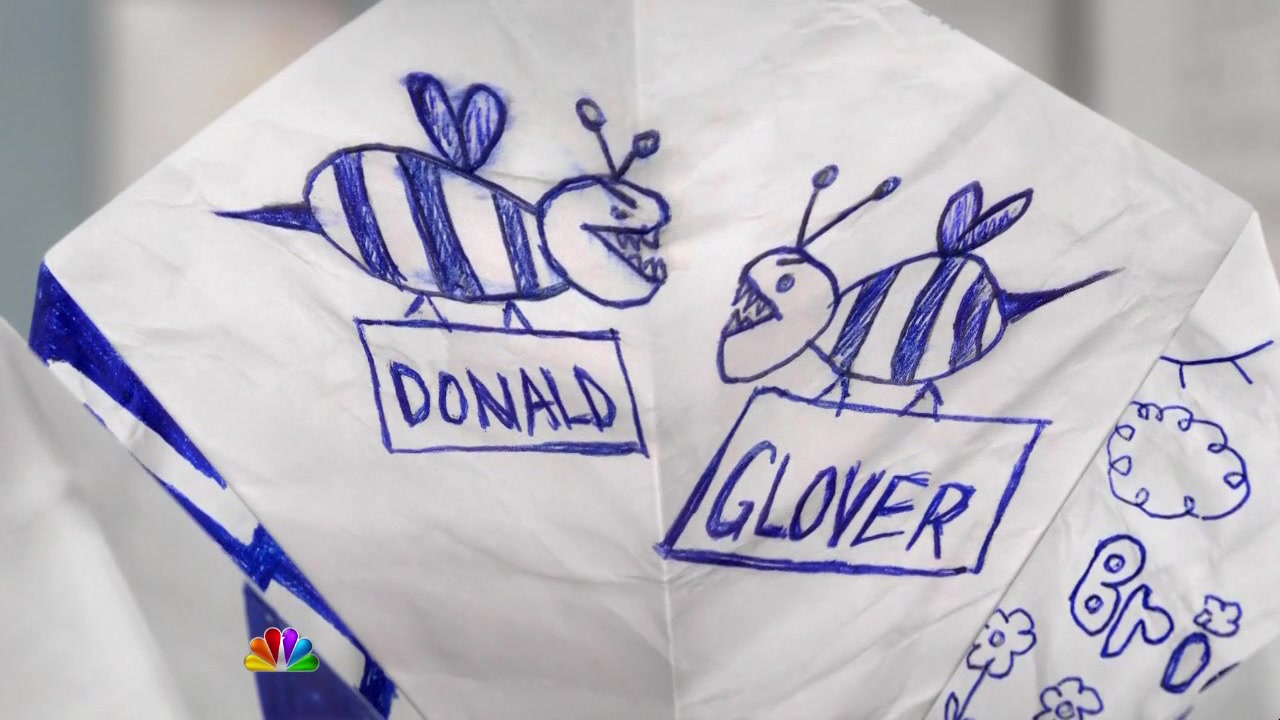 DONALD
GLOVER
Bri